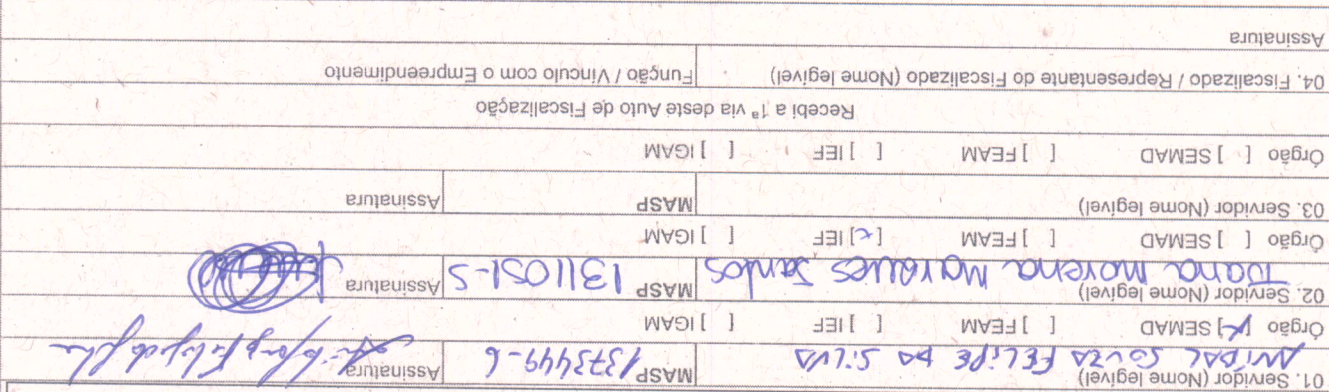 01. Servidor (Nome legível) MASP Assinatura
ANIDAL SOUZA FELIPE DA SILVA 1373449-6
Órgão [x] SEMAD [ ] FEAM [ ] IEF [ ] IGAM
02. Servidor (Nome legível) MASP 1311051-5 Assinatura
Joana Morena Marques Santos
Órgão [ ] SEMAD [ ] FEAM [x] IEF [ ] IGAM
03. Servidor (Nome legível) MASP Assinatura
Órgão [ ] SEMAD [ ] FEAM [ ] IEF [ ] IGAM
Recebi a 1ª via deste Auto de Fiscalização
04. Fiscalizado / Representante do Fiscalizado (Nome legível) Função / Vínculo com o Empreendimento
Assinatura